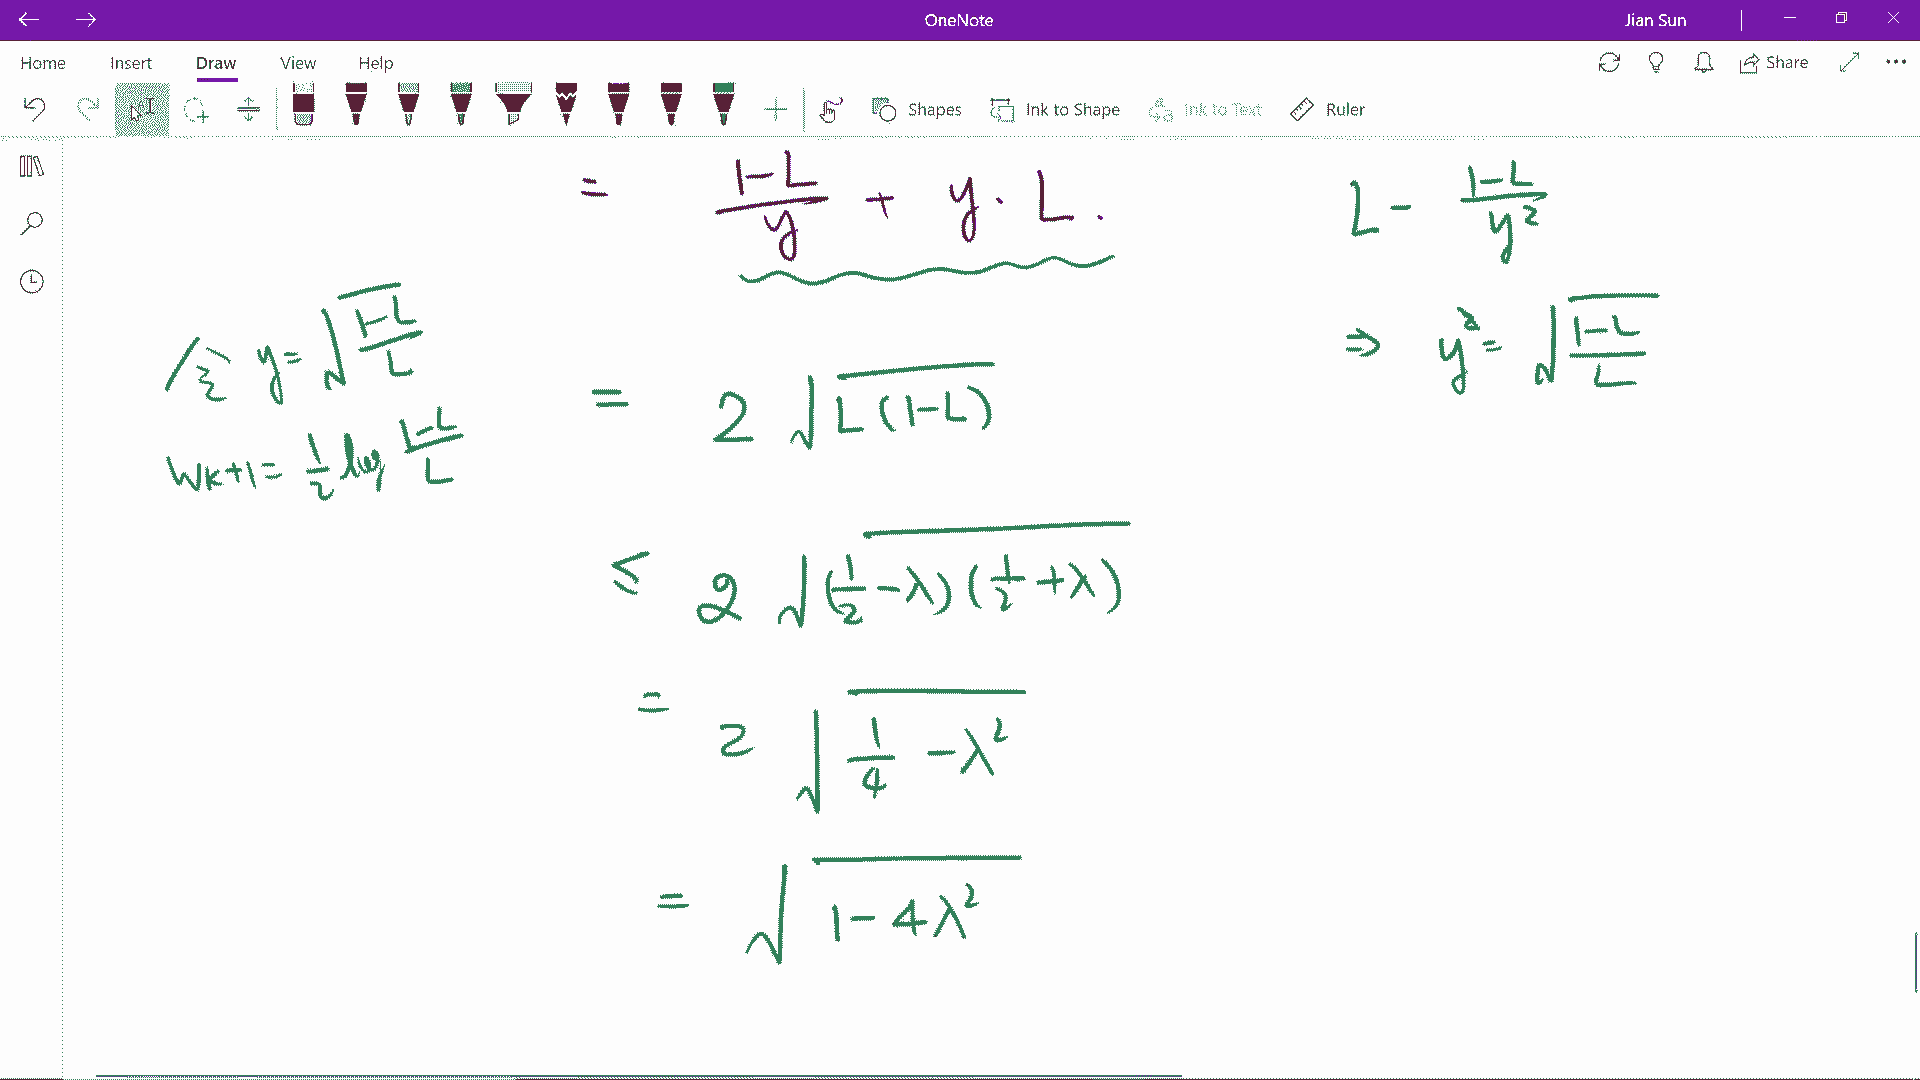 OneNote
Jian Sun
Home Insert Draw View Help
Share
Shapes Ink to Shape Ink to Text Ruler
= (1-L)/y + y · L .
L - (1-L)/y²
令 y = √((1-L)/L)
⇒ y = √((1-L)/L)
= 2 √(L(1-L))
W_{K+1} = 1/2 log (1-L)/L
≤ 2 √((1/2 - λ)(1/2 + λ))
= 2 √(1/4 - λ²)
= √(1 - 4λ²)